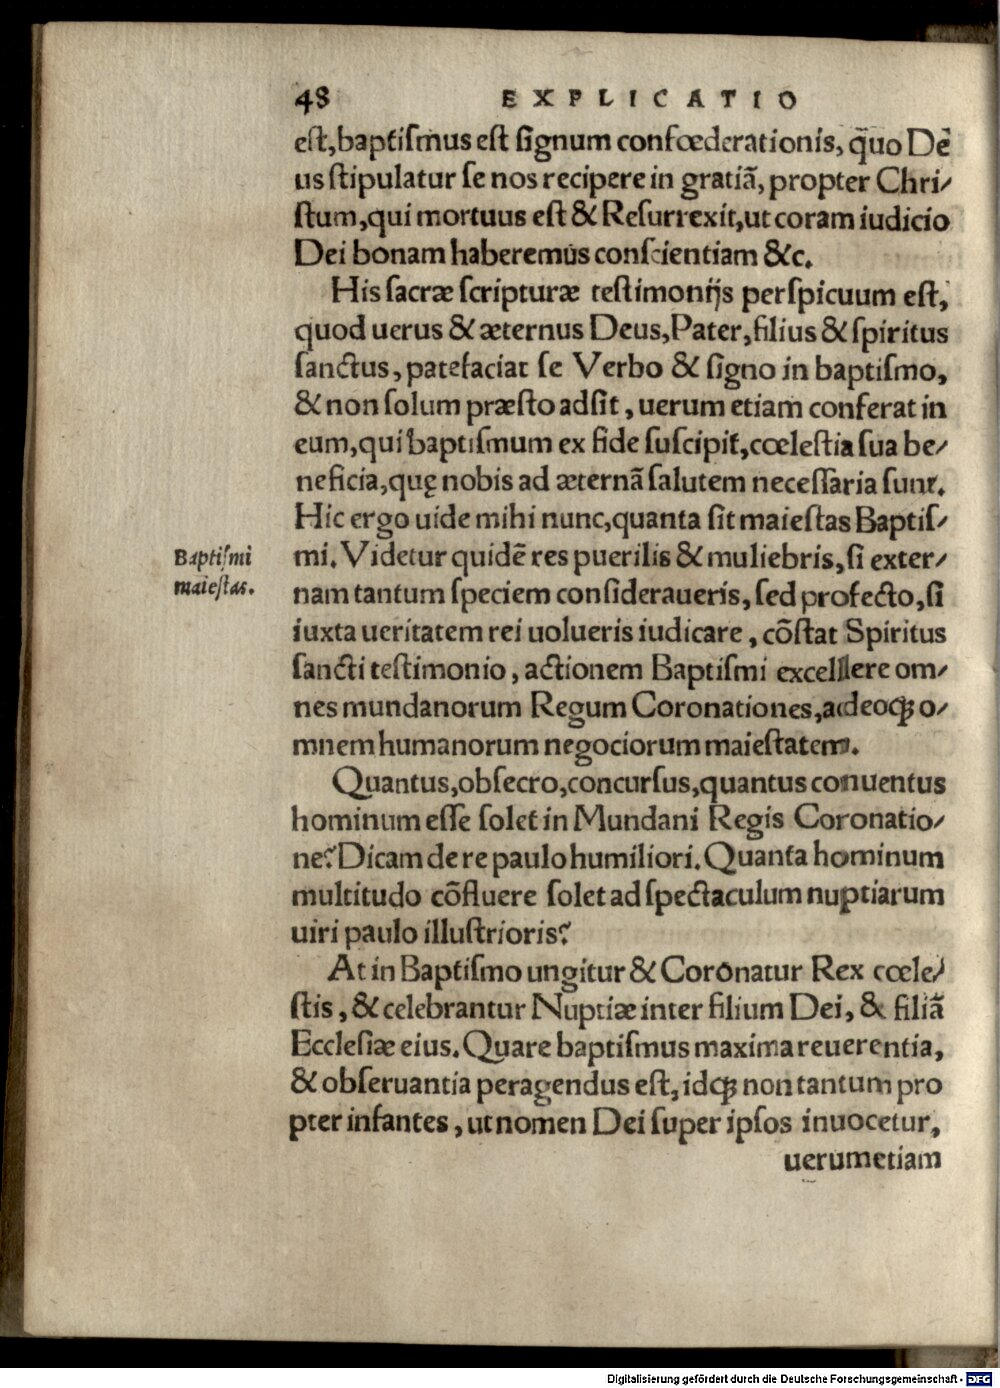 48 EXPLICATIO
eſt, baptiſmus eſt ſignum confœderationis, q̃uo De
us ſtipulatur ſe nos recipere in gratiã, propter Chri⸗
ſtum, qui mortuus eſt & Reſurrexit, ut coram iudicio
Dei bonam haberemus conſcientiam &c.
His ſacræ ſcripturæ teſtimonijs perſpicuum eſt,
quod uerus & æternus Deus, Pater, filius & ſpiritus
ſanctus, patefaciat ſe Verbo & ſigno in baptiſmo,
& non ſolum præſto adſit, uerum etiam conferat in
eum, qui baptiſmum ex fide ſuſcipit, cœleſtia ſua be⸗
neficia, quę nobis ad æternã ſalutem neceſſaria ſunt.
Hic ergo uide mihi nunc, quanta ſit maieſtas Baptiſ⸗
mi. Videtur quidẽ res puerilis & muliebris, ſi exter⸗
nam tantum ſpeciem conſideraueris, ſed profecto, ſi
iuxta ueritatem rei uolueris iudicare, cõſtat Spiritus
ſancti teſtimonio, actionem Baptiſmi excellere om⸗
nes mundanorum Regum Coronationes, adeoq́ꝫ o⸗
mnem humanorum negociorum maieſtatem.
Quantus, obſecro, concurſus, quantus conuentus
hominum eſſe ſolet in Mundani Regis Coronatio⸗
ne? Dicam de re paulo humiliori. Quanta hominum
multitudo cõfluere ſolet ad ſpectaculum nuptiarum
uiri paulo illuſtrioris?
At in Baptiſmo ungitur & Coronatur Rex cœle⸗
ſtis, & celebrantur Nuptiæ inter filium Dei, & filiã
Eccleſiæ eius. Quare baptiſmus maxima reuerentia,
& obſeruantia peragendus eſt, idq́ꝫ non tantum pro
pter infantes, ut nomen Dei ſuper ipſos inuocetur,
uerumetiam
Baptiſmi
maieſtas.
Digitalisierung gefördert durch die Deutsche Forschungsgemeinschaft - DFG